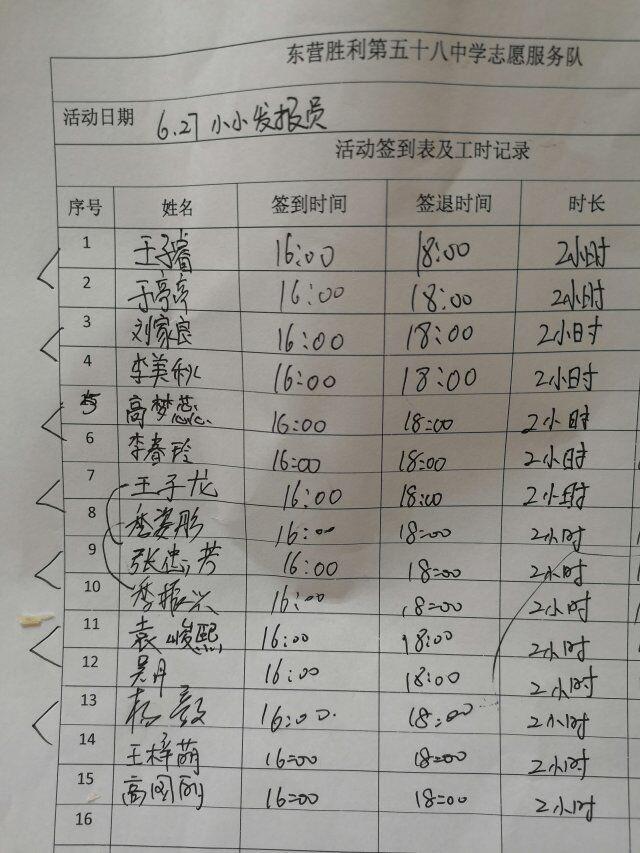 东营胜利第五十八中学志愿服务队
活动日期 6.27 小小发报员
活动签到表及工时记录
序号 姓名 签到时间 签退时间 时长
1 于子睿 16:00 18:00 2小时
2 于亭亭 16:00 18:00 2小时
3 刘家良 16:00 18:00 2小时
4 李美秋 16:00 18:00 2小时
5 高梦蕊 16:00 18:00 2小时
6 李春玲 16:00 18:00 2小时
7 王子龙 16:00 18:00 2小时
8 季姿彤 16:00 18:00 2小时
9 张忠芳 16:00 18:00 2小时
10 季振兴 16:00 18:00 2小时
11 袁峻熙 16:00 18:00 2小时
12 吴丹 16:00 18:00 2小时
13 16:00 18:00 2小时
14 王梓萌 16:00 18:00 2小时
15 16:00 18:00 2小时
16